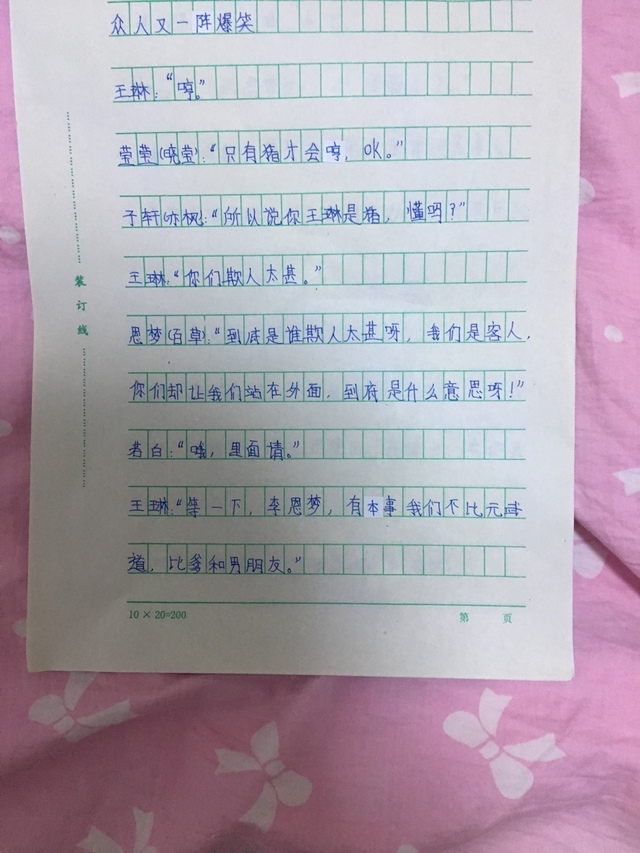 众人又一阵爆笑
王琳:“哼。”
莹莹(晓莹):“只有猪才会哼,OK。”
子轩(亦枫):“所以说你王琳是猪,懂吗?”
王琳:“你们欺人太甚。”
思梦(百草):“到底是谁欺人太甚呀,我们是客人,
你们却让我们站在外面,到底是什么意思呀!”
若白:“哦,里面请。”
王琳:“等一下,李思梦,有本事我们不比元武
道,比爹和男朋友。”
装订线
10×20=200
第 页